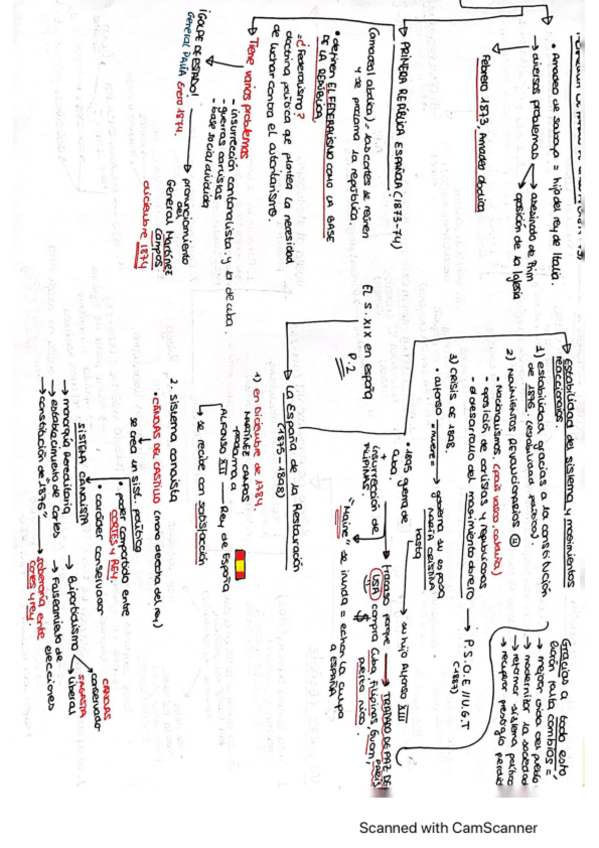 EL S. XIX en españa
P.2
• Amadeo de Saboya = hijo del rey de Italia.
→ diversos problemas → asesinado de Prim
→ oposición de la Iglesia
Febrero 1873, Amadeo abdica
→ PRIMERA REPÚBLICA ESPAÑOLA (1873-74)
(Amadeo abdica), las cortes se reúnen
y se proclama la república.
• definen EL FEDERALISMO COMO LA BASE
DE LA REPÚBLICA
¿Federalismo?
doctrina política que plantea la necesidad
de luchar contra el autoritarismo.
→ Tiene varios problemas
- insurrección cantonalista y la de cuba.
- guerras carlistas
- base social dividida
¡GOLPE DE ESTADO!
General PAVÍA Enero 1874.
→ pronunciamiento
del
General Martínez
Campos
diciembre 1874
→ La España de la Restauración
(1875-1898)
1) en diciembre de 1784.
MARTÍNEZ CAMPOS
proclama a
ALFONSO XII → Rey de España
→ se recibe con satisfacción
2. sistema canovista
• CÁNOVAS DEL CASTILLO (mano derecha del rey)
se crea un sist. político
• poder compartido entre
CORTES Y REY.
• carácter conservador
SISTEMA CANOVISTA
→ monarquía hereditaria
→ establecimiento de cortes
→ constitución de 1876
→ soberanía entre
cortes y rey.
→ Bipartidismo
→ conservador
CÁNOVAS
→ liberal
SAGASTA
→ Falseamiento de
elecciones
→ Estabilidad del sistema y movimientos
reaccionarios.
1) estabilidad gracias a la constitución
de 1876. (estabilidad política).
2) MOVIMIENTOS REVOLUCIONARIOS
- Nacionalismos. (país vasco, cataluña)
- oposición de carlistas y republicanos
- el desarrollo del movimiento obrero → P.S.O.E // U.G.T
(1887)
3) CRISIS DE 1898.
• alfonso muere → gobierna su esposa
MARÍA CRISTINA
hasta
→ su hijo Alfonso XIII
• 1895 guerra de
Cuba.
+
insurrección de
FILIPINAS
→ fracaso porque
USA compra Cuba, filipinas, Guam,
puerto rico.
→ TRATADO DE PAZ DE
PARÍS
$
"Maine" se hunda = echan la culpa
a ESPAÑA
Gracias a todo esto
harán falta cambios =
→ mejor vida del pueblo
→ modernizar la sociedad
→ reformar sistema político
→ recuperar prestigio perdido
Scanned with CamScanner